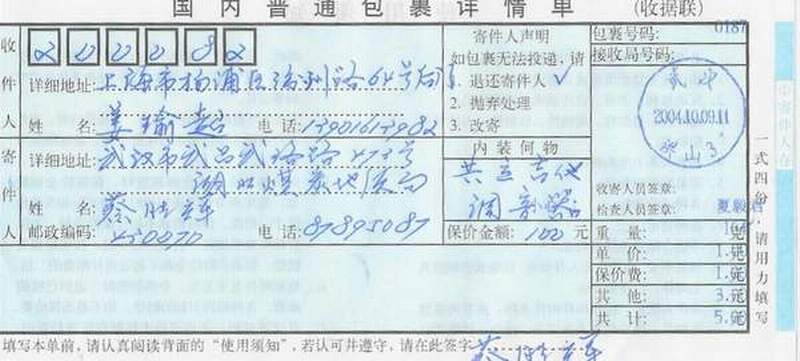 国内普通包裹详情单 (收据联)
0187
收件人
200082
详细地址: 上海市杨浦区 路64号
姓名: 姜瑜 电话: 13901613982
寄件人
详细地址: 武汉市武昌武珞路
煤炭地质局
姓名: 蔡
邮政编码: 430070 电话: 87895087
寄件人声明
如包裹无法投递,请
1. 退还寄件人 ✓
2. 抛弃处理
3. 改寄
内装何物
共立吉他
调音器
保价金额: 100 元
包裹号码:
接收局号码:
武汉
2004.10.09.11
山3
收寄人员签章:
检查人员签章: 夏毅君
重量: 克
单价: 1.元
保价费: 1.元
其他: 3.元
共计: 5.元
填写本单前,请认真阅读背面的“使用须知”,若认可并遵守,请在此签字 蔡
一式四份,请用力填写